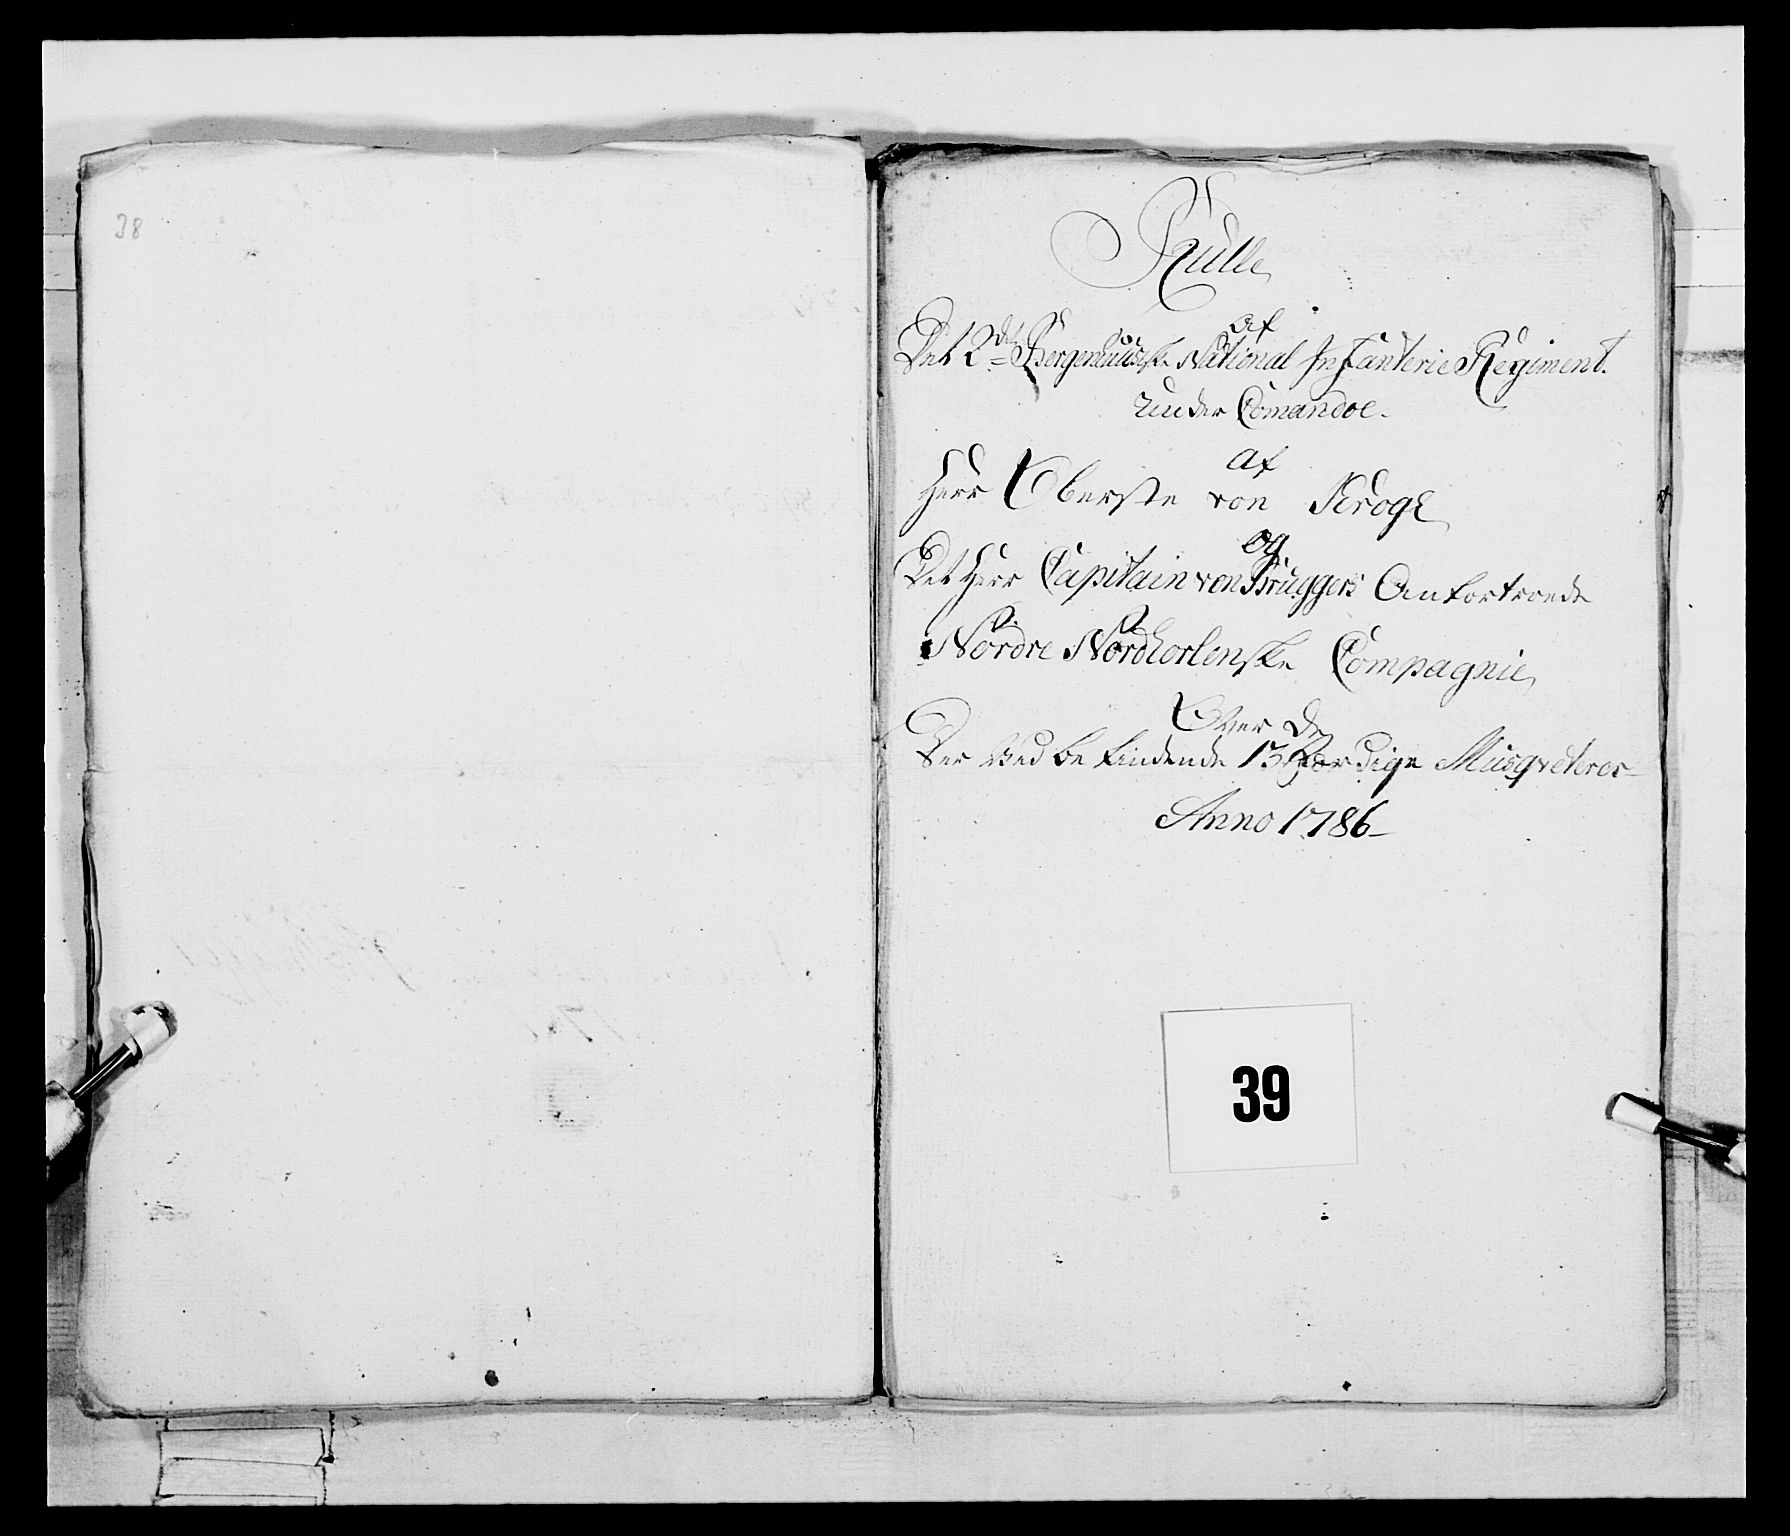 38
Rulle
af
Det 2det Bergenhuusiske National Infanterie Regiment.
Under Comandoe
af
Herr Oberste von Krogh
og
Det Herr Capitain von Bruggers Anfortroede
Nordre Nordhorlenske Compagnie
Over de
Der Ved befindende 13 Færdige Musqveterer
Anno 1786
39